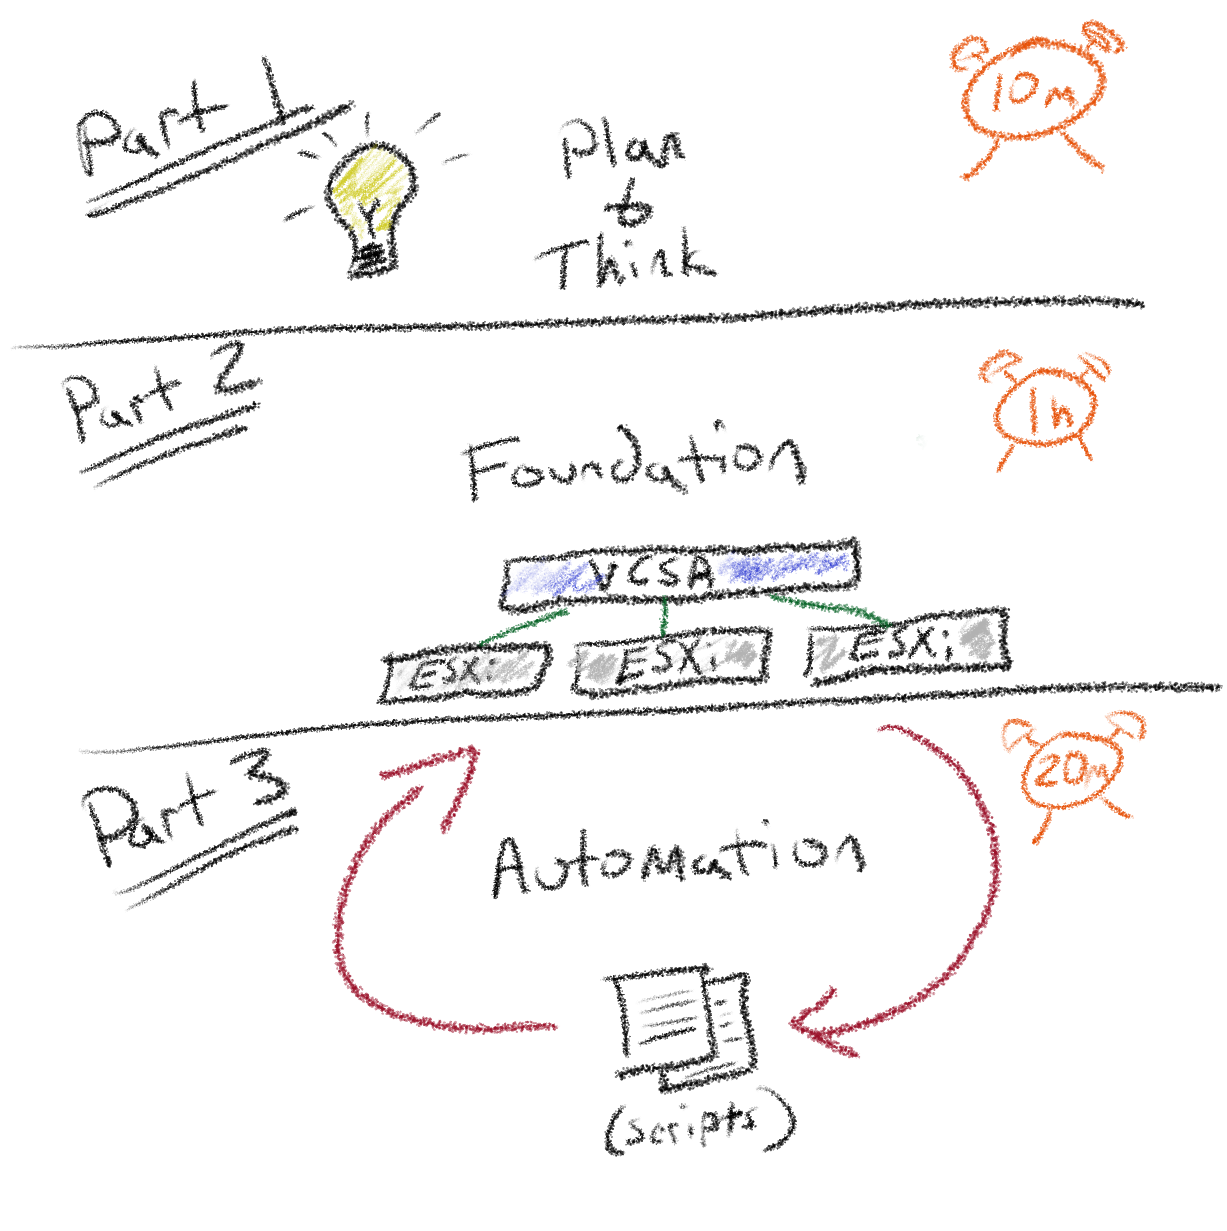 Part 1
10m
Plan
to
Think
Part 2
1h
Foundation
VCSA
ESXi
ESXi
ESXi
Part 3
20m
Automation
(scripts)